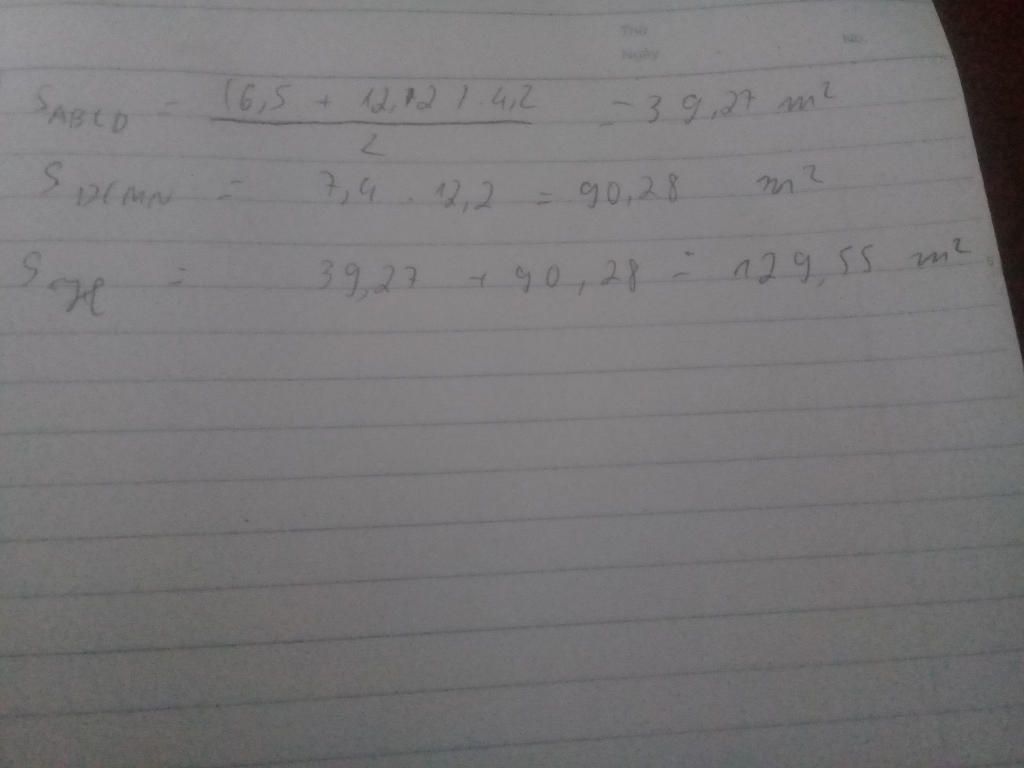 THỨ
NGÀY
NO.
S ABCD = (6,5 + 12,12) . 4,2 / 2 = 39,27 m²
S DCMN = 7,4 . 12,2 = 90,28 m²
S = 39,27 + 90,28 = 129,55 m²